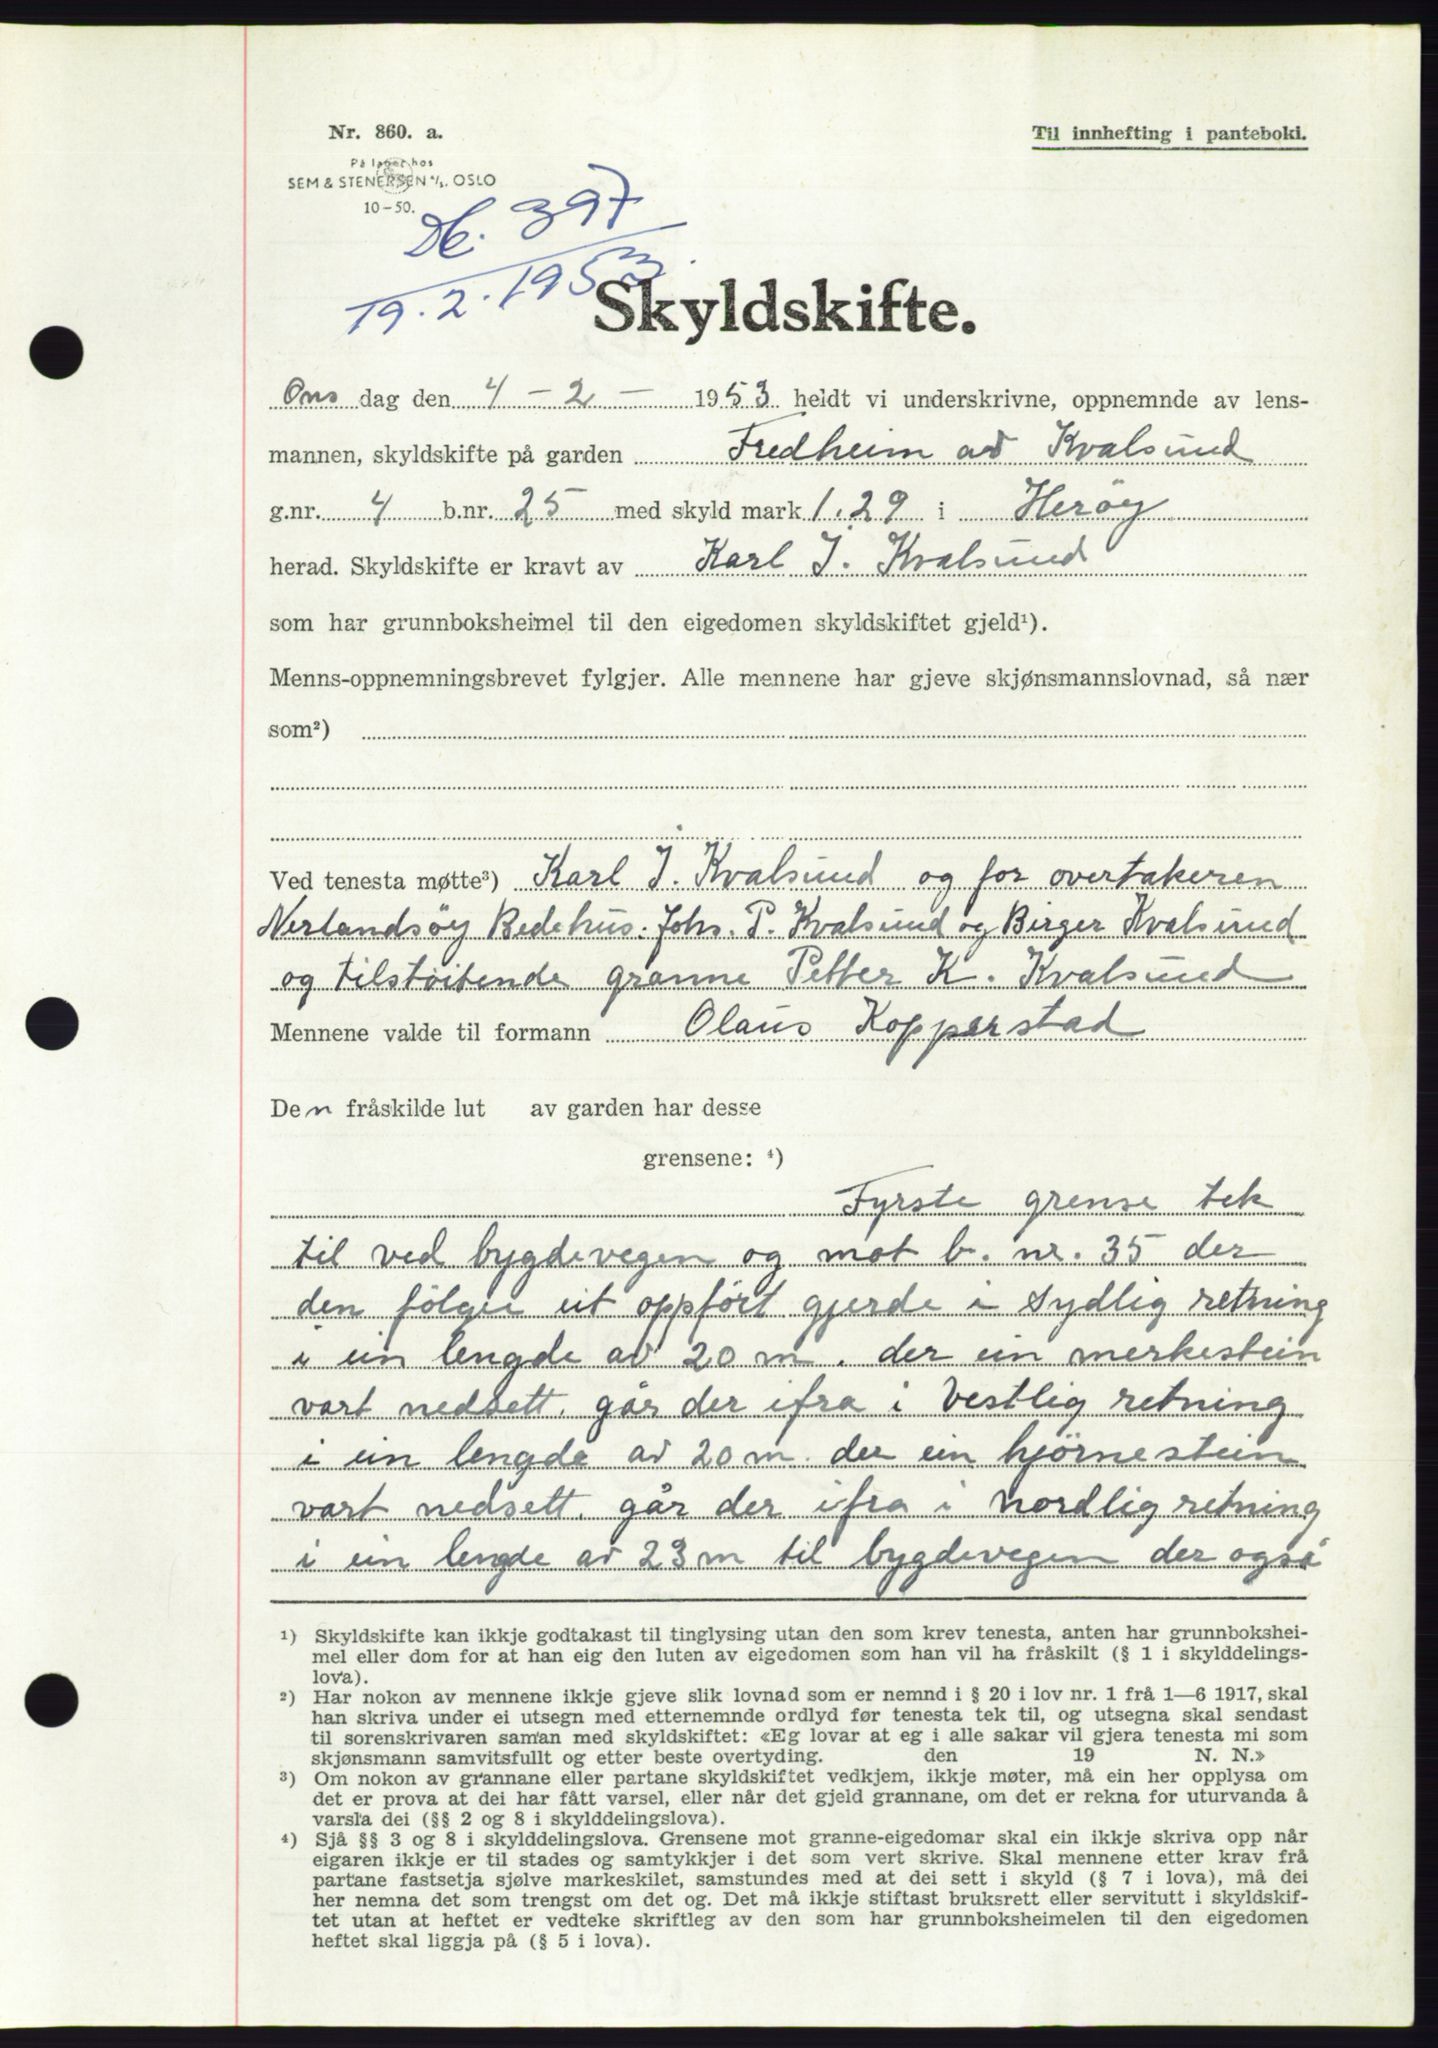 Nr. 860. a.
Til innhefting i panteboki.
På lager hos
SEM & STENERSEN A/S. OSLO
10-50.
Db. 397
19.2.1953.
Skyldskifte.
Ons dag den 4 - 2 - 1953 heldt vi underskrivne, oppnemnde av lens-
mannen, skyldskifte på garden Fredheim av Kvalsund
g.nr. 4 b.nr. 25 med skyld mark 1.29 i Herøy
herad. Skyldskifte er kravt av Karl J. Kvalsund
som har grunnboksheimel til den eigedomen skyldskiftet gjeld¹).
Menns-oppnemningsbrevet fylgjer. Alle mennene har gjeve skjønsmannslovnad, så nær
som²)
Ved tenesta møtte³) Karl J. Kvalsund og for overtakeren
Nerlandsöy Bedehus. Johs. P. Kvalsund og Birger Kvalsund
og tilstöitende granne Petter K. Kvalsund
Mennene valde til formann Olaus Kopperstad
Den fråskilde lut av garden har desse
grensene: ⁴)
Fyrste grense tek
til ved bygdevegen og mot b. nr. 35 der
den fölger eit oppfört gjerde i sydlig retning
i ein lengde av 20 m. der ein merkestein
vart nedsett. går der ifra i Vestlig retning
i ein lengde av 20 m. der ein hjörnestein
vart nedsett. går der ifra i nordlig retning
i ein lengde av 23 m til bygdevegen der også
¹) Skyldskifte kan ikkje godtakast til tinglysing utan den som krev tenesta, anten har grunnbokshei-
mel eller dom for at han eig den luten av eigedomen som han vil ha fråskilt (§ 1 i skylddelings-
lova).
²) Har nokon av mennene ikkje gjeve slik lovnad som er nemnd i § 20 i lov nr. 1 frå 1—6 1917, skal
han skriva under ei utsegn med etternemnde ordlyd før tenesta tek til, og utsegna skal sendast
til sorenskrivaren saman med skyldskiftet: «Eg lovar at eg i alle sakar vil gjera tenesta mi som
skjønsmann samvitsfullt og etter beste overtyding. den 19 N. N.»
³) Om nokon av grannane eller partane skyldskiftet vedkjem, ikkje møter, må ein her opplysa om
det er prova at dei har fått varsel, eller når det gjeld grannane, om det er rekna for uturvanda å
varsla dei (§§ 2 og 8 i skylddelingslova).
⁴) Sjå §§ 3 og 8 i skylddelingslova. Grensene mot granne-eigedomar skal ein ikkje skriva opp når
eigaren ikkje er til stades og samtykkjer i det som vert skrive. Skal mennene etter krav frå
partane fastsetja sjølve markeskilet, samstundes med at dei sett i skyld (§ 7 i lova), må dei
her nemna det som trengst om det og. Det må ikkje stiftast bruksrett eller servitutt i skyldskif-
tet utan at heftet er vedteke skriftleg av den som har grunnboksheimelen til den eigedomen
heftet skal liggja på (§ 5 i lova).